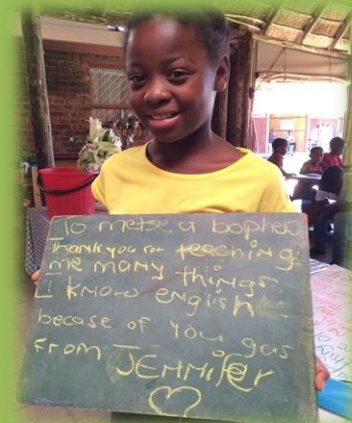 To metse a bophelo
Thank you for teaching
me many things.
I know english
becase of you gus
from JENNifer